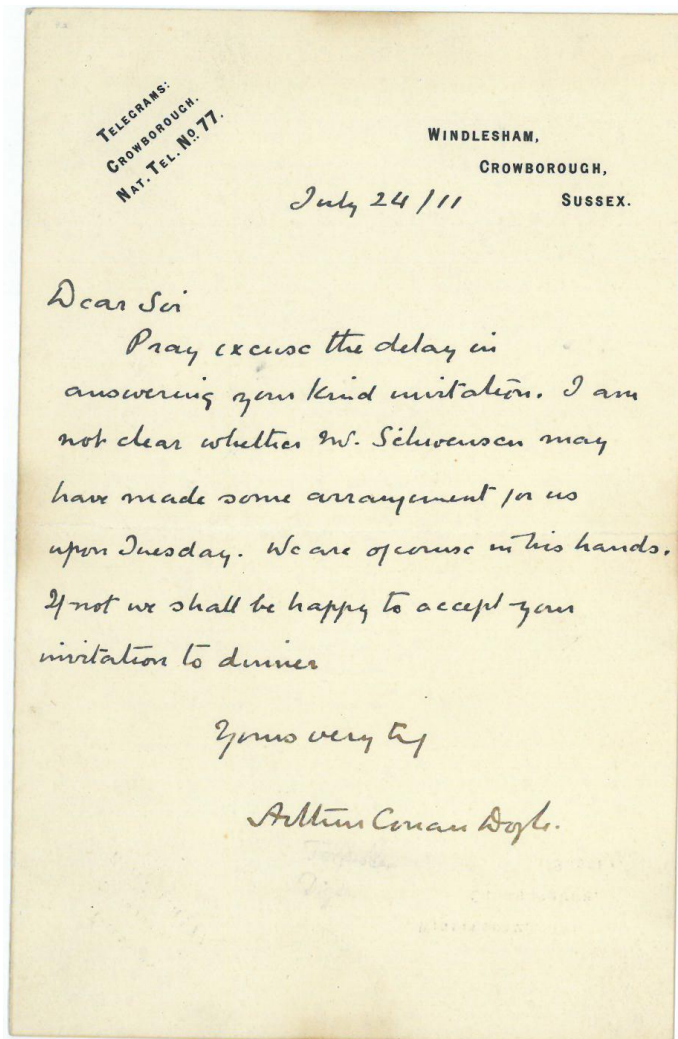 TELEGRAMS:
CROWBOROUGH.
NAT. TEL. No 77.
WINDLESHAM,
CROWBOROUGH,
SUSSEX.
July 24/11
Dear Sir
Pray excuse the delay in
answering your kind invitation. I am
not clear whether Mr. may
have made some arrangement for us
upon Tuesday. We are of course in his hands.
If not we shall be happy to accept your
invitation to dinner
Yours very
Arthur Conan Doyle.